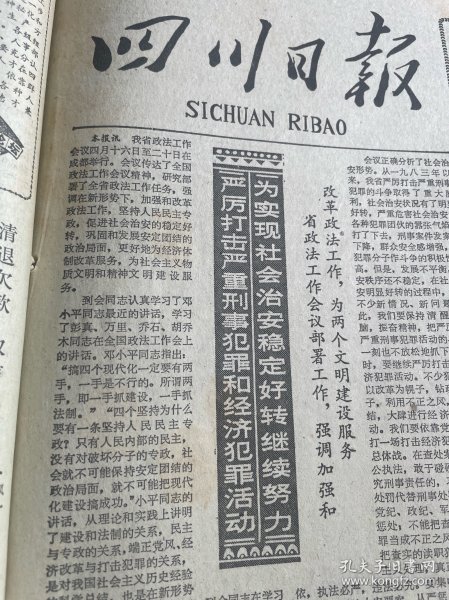 四川日報
SICHUAN RIBAO
本报讯 我省政法工作
会议四月十六日至二十日在
成都举行。会议传达了全国
政法工作会议精神，研究部
署了全省政法工作任务，强
调在新形势下，加强和改革
政法工作，坚持人民民主专
政，促进社会治安的稳定好
转，巩固和发展安定团结的
政治局面，更好地为经济体
制改革服务，为社会主义物
质文明和精神文明建设服
务。
到会同志认真学习了邓
小平同志最近的讲话，学习
了彭真、万里、乔石、胡乔
木同志在全国政法工作会上
的讲话。邓小平同志指出：
“搞四个现代化一定要有两
手，一手是不行的。所谓两
手，即一手抓建设，一手抓
法制。”“四个坚持为什么
要有一条坚持人民民主专
政？只有人民内部的民主，
没有对破坏分子的专政，社
会就不可能保持安定团结的
政治局面，就不可能把现代
化建设搞成功。”小平同志的
讲话，从理论和实践上讲明
了建设和法制的关系，民主
与专政的关系，端正党风、经
济改革与打击犯罪的关系，
是对我国社会主义历史经验
的科学总结，也是在新形势
为实现社会治安稳定好转继续努力
严厉打击严重刑事犯罪和经济犯罪活动
改革政法工作，为两个文明建设服务
省政法工作会议部署工作，强调加强和
会议正确分析了社会治
安形势。从一九八三年以
来，我省严厉打击严重刑事
犯罪的斗争取得了重大胜
利，社会治安状况有了明显
好转，严重危害社会治安的
各种犯罪团伙的嚣张气焰
打了下去，刑事案件发案
下降，群众安全感增强，
犯罪分子作斗争的积极性
高。但是，发展不平衡，
安秩序还不稳定，在社会
安明显好转的过程中，
不少新情况、新问题
此，我们要保持清醒
脑，振奋精神，把严厉
刑事犯罪活动的
一刻也不放松地抓下
时，要继续严厉打击
济犯罪活动。不少犯
以改革为幌子，钻
子，利用不正之风，
结，大肆进行经济
动。我们要依靠党
打一场打击经济犯
总体战。在查处
公执法，敢于碰硬
究刑事责任的，
处罚代替刑事处
党纪、政纪、军
惩处；不能把
罪当成不正之风
把查实的渎职犯
执法必严，违法必究
到会同志在学习
清退欠款
孔夫子旧书网